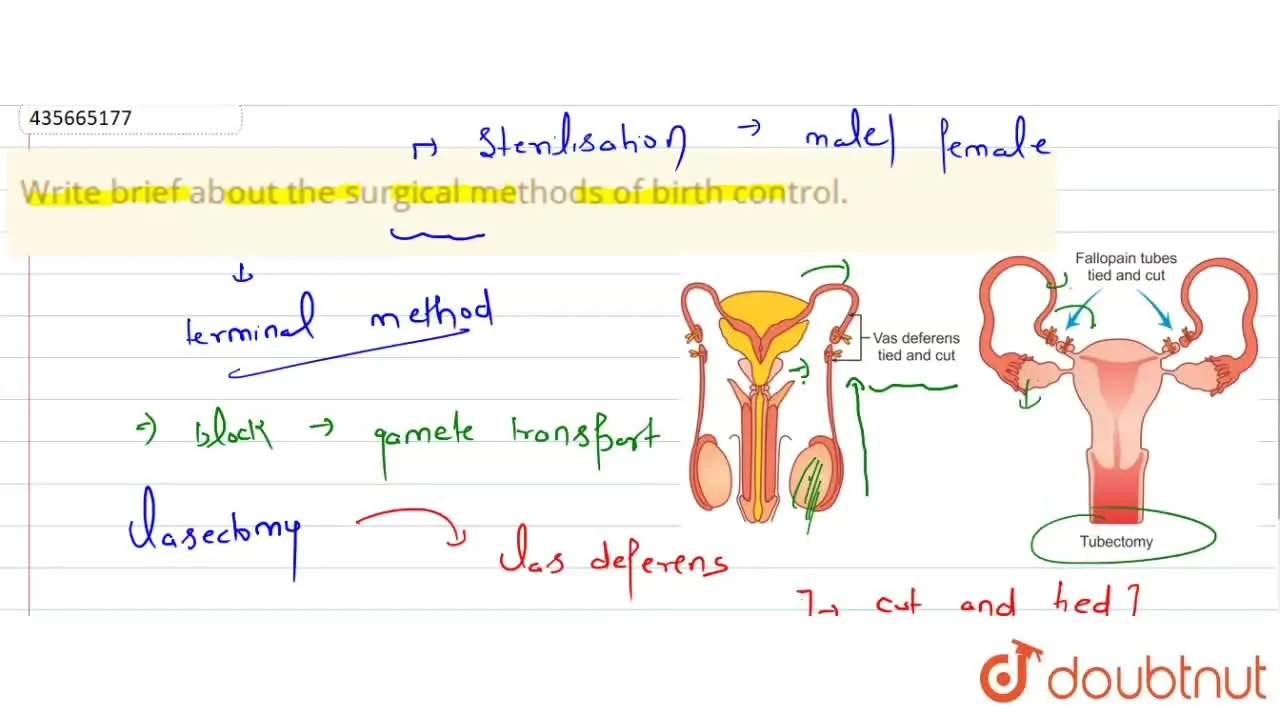 435665177
→ Sterilisation → male/ female
Write brief about the surgical methods of birth control.
↓
terminal method
Fallopain tubes
tied and cut
Vas deferens
tied and cut
⇒ block → gamete transport
Vasectomy
Vas deferens
Tubectomy
→ cut and tied
doubtnut